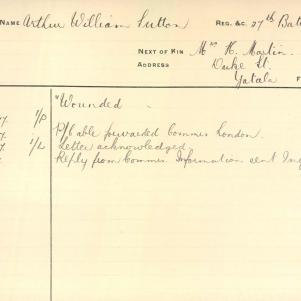 NAME Arthur William Sutton REG. &C. 27th Bat
NEXT OF KIN Mrs H. Martin
ADDRESS Duke St.
Yatala F
"Wounded
7. 1/P P/Cable forwarded Commes London.
7. 1/L Letter acknowledged.
Reply from Commes. Information sent Inq